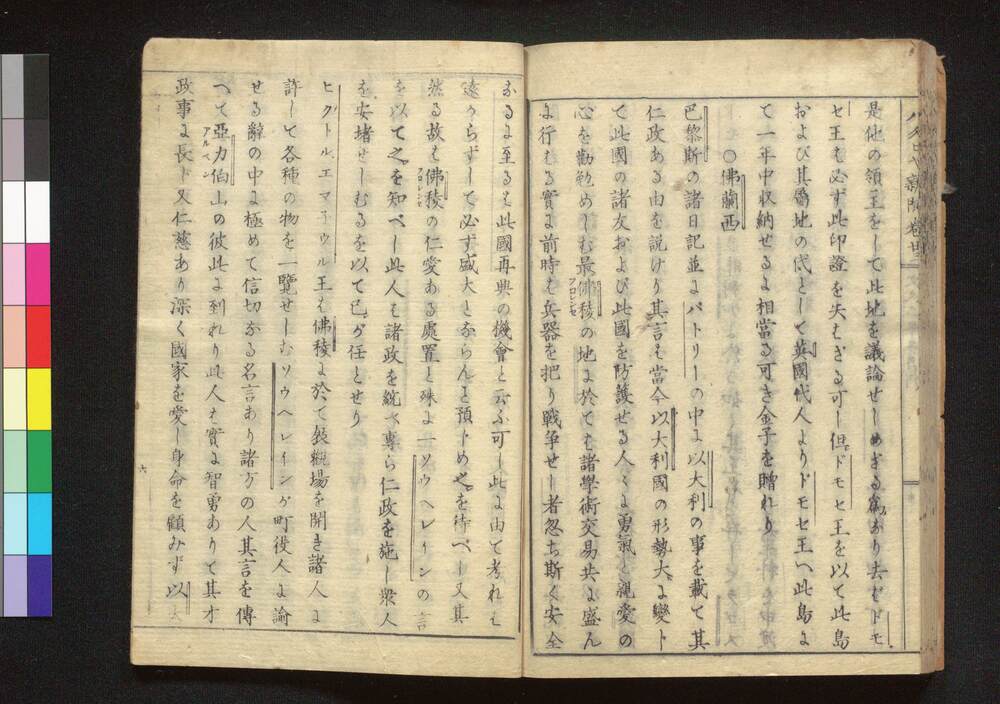 是他の領主をして此地を議論せしめざる為なり去どドモ
セ王も必ず此印證を失はざる可し但ドモセ王を以て此島
および其屬地の代として英國代人よりドモセ王へ此島よ
て一年中収納せるよ相當る可き金子を贈れり
〇佛蘭西
巴黎斯の諸日記並よパトリーの中よ以大利の事を載て其
仁政ある由を説けり其言も當今以大利國の形勢大よ變ト
て此國の諸友および此國を防護せる人くよ勇氣と親愛の
心を勸勉めしむ最佛稜の地よ於ても諸學術交易共よ盛ん
フロレンセ
よ行もる實よ前時も兵器を把り戦争せし者忽ち斯く安全
なるよ至るも此國再興の機會と云ふ可し此よ由て考れも
遠からずして必ず盛大とならんと預トめ之を待べし又其
然る故も佛稜の仁愛ある處置と殊よ一ソウヘレインの言
フロレンセ
を以て之を知べし此人も諸政を統べ専ら仁政を施し衆人
を安堵せしむるを以て已が任とせり
ヒクトル、エマニウル王も佛稜よ於て展觀場を開き諸人よ
許して各種の物を一覽せしむソウヘレインが町役人よ諭
せる辭の中よ極めて信切なる名言あり諸方の人其言を傳
へて亞力伯山の彼此よ到れり此人も實よ智勇ありて其才
アルペン
政事よ長ト又仁慈あり深く國家を愛し身命を顧みず以大
六